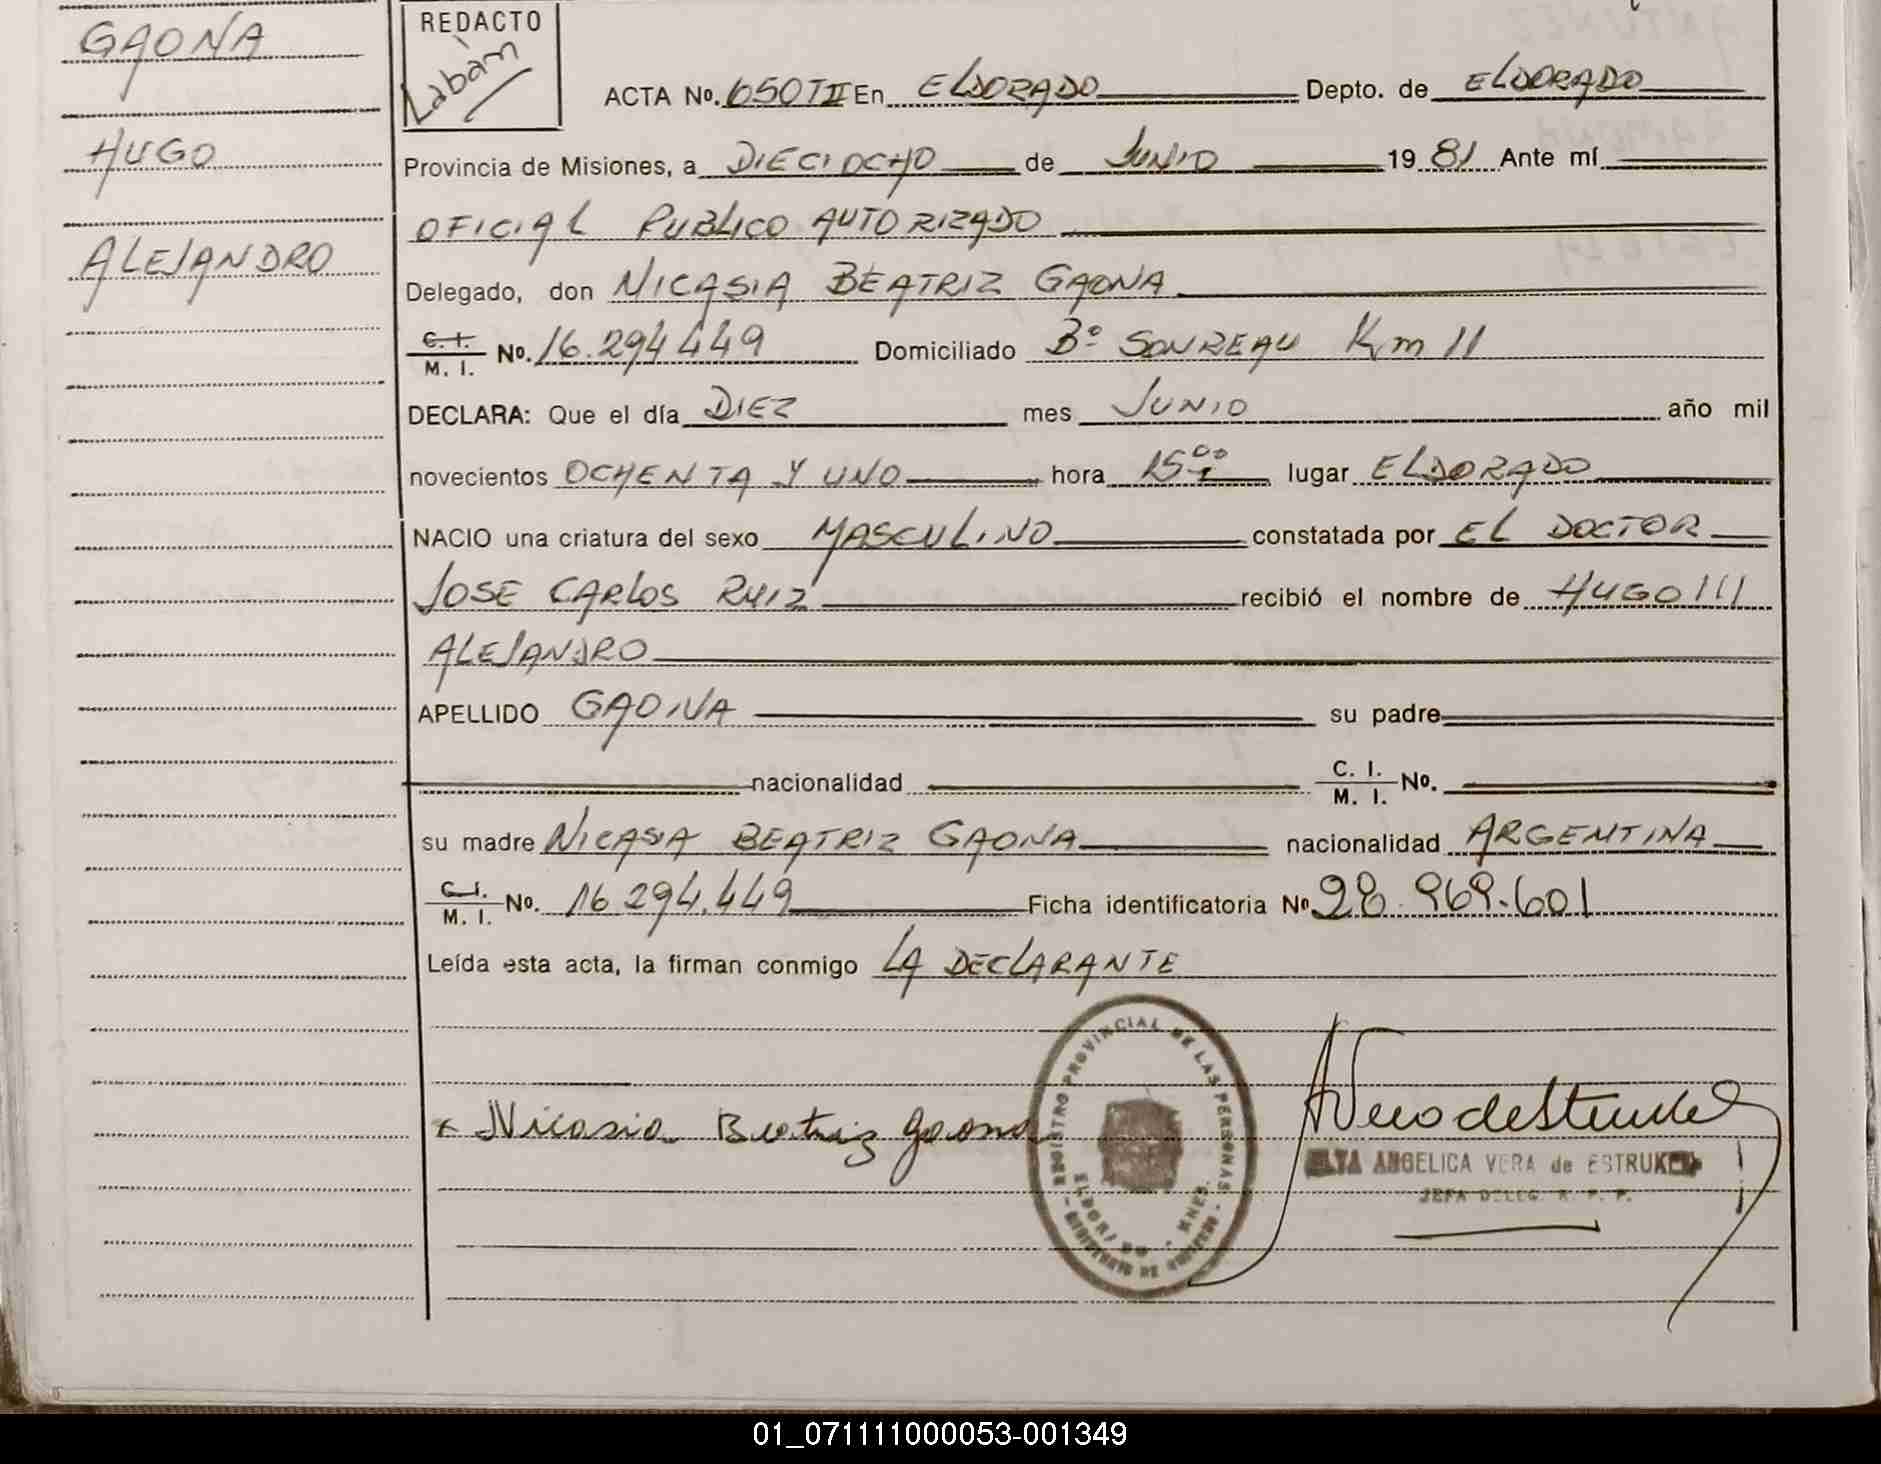 GAONA
HUGO
ALEJANDRO
REDACTO
Labàm
ACTA No. 650 T II En ELDORADO Depto. de ELDORADO
Provincia de Misiones, a DIECIOCHO de JUNIO 19 81 Ante mí
OFICIAL PUBLICO AUTORIZADO
Delegado, don NICASIA BEATRIZ GAONA
C. I. M. I. No. 16.294449 Domiciliado Bº SONREAU Km 11
DECLARA: Que el día DIEZ mes JUNIO año mil
novecientos OCHENTA Y UNO hora 15 00 lugar ELDORADO
NACIO una criatura del sexo MASCULINO constatada por EL DOCTOR
JOSE CARLOS RUIZ recibió el nombre de HUGO///
ALEJANDRO
APELLIDO GAONA su padre
nacionalidad C. I. M. I. No.
su madre NICASIA BEATRIZ GAONA nacionalidad ARGENTINA
C. I. M. I. No. 16.294.449 Ficha identificatoria No 28.969.601
Leída esta acta, la firman conmigo LA DECLARANTE
x Nicasia Beatriz gaona
REGISTRO PROVINCIAL DE LAS PERSONAS
ELDORADO - MNES.
MINISTERIO DE GOBIERNO
ANGELICA VERA de ESTRUK
JEFA DELEG. R. P. P.
01_071111000053-001349